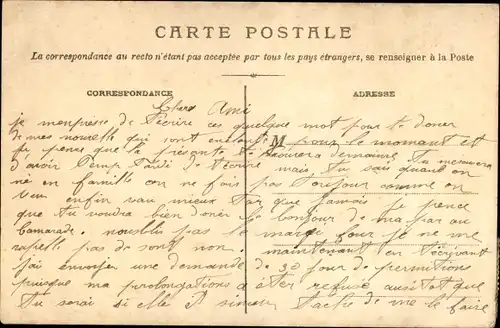 CARTE POSTALE
La correspondance au recto n'étant pas acceptée par tous les pays étrangers, se renseigner à la Poste
CORRESPONDANCE
ADRESSE
Chers Ami
je m'empresse de t'écrire ces quelque mot pour te doner
de mes nouvelle qui sont M pour le moment et
je pence que la présente te trouvera de même Tu
d'avoir temp de t'écrire mais Tu sais quand on
né en famille on ne fais pas toujour comme on
veu enfin vau mieux Tar que Jamais je pence
que tu voudra bien doner le bonjour de ma par au
Camarade. pas le jour je ne me
rapelle pas de sont non. maintenant en t'écrivant
j'ai envoyer une demande de 30 jour de permitions
puisque ma prolongations a èter refusé aussitôt que
Tu sorai si elle tache de me le faire